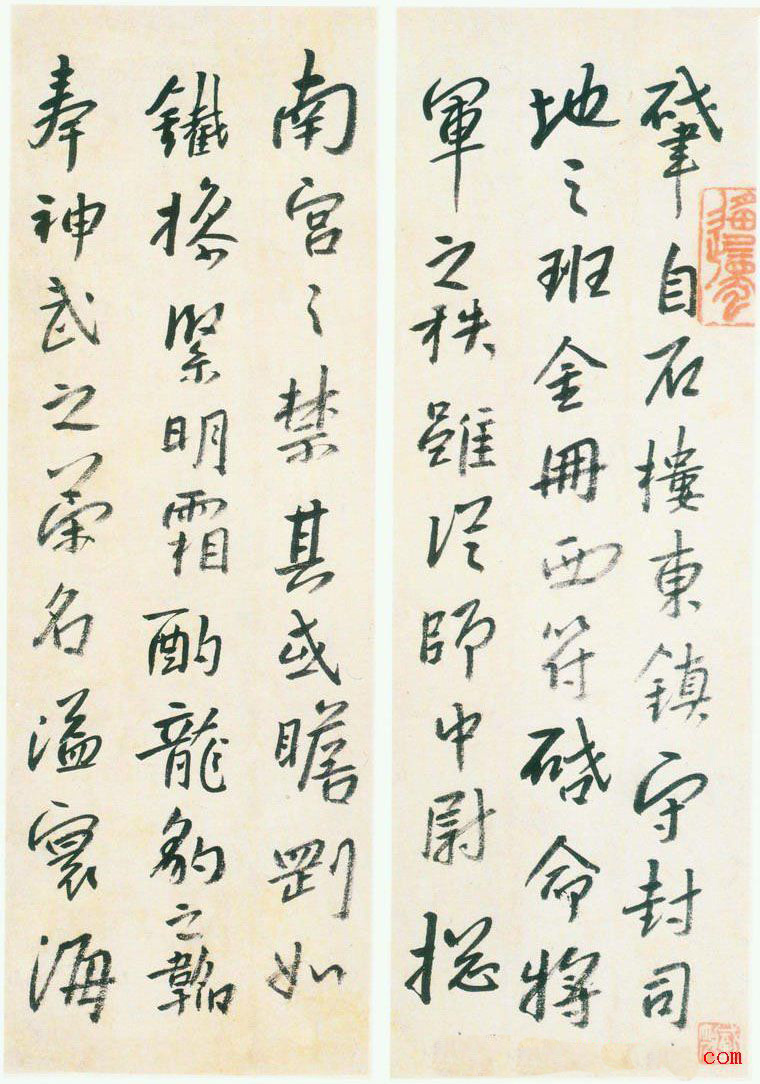 肇自石樓東鎮守封司
地之班金冊西符啓命將
軍之秩雖從師中尉揔
南宮之禁其或瞻劉如
鐵操緊明霜酌龍豹之韜
奉神武之榮名溢寰海
com